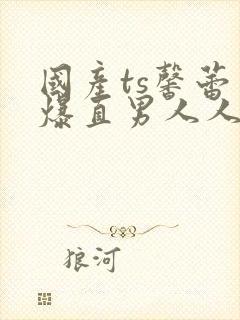 國産ts馨蕾
爆直男人人
狼河